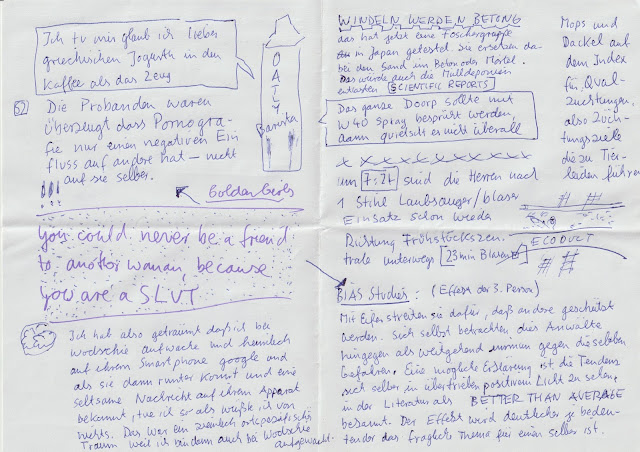 Ich tu mir glaub ich lieber
griechischen Jogurth in den
Kaffee als das Zeug
OATLY
Barista
52
Die Probanden waren
überzeugt dass Pornogra-
fie nur einen negativen Ein
fluss auf andre hat – nicht
auf sie selber.
!!!
Golden Girls
you could never be a friend
to another woman, because
you are a SLUT
Ich hab also geträumt daß ich bei
Wodschie aufwache und heimlich
auf ihrem Smartphone google und
als sie dann runter kommt und eine
seltsame Nachricht auf ihrem Apparat
bekommt, tue ich so als wüßte ich von
nichts. Das war ein ziemlich ortsspezifischer
Traum weil ich bin dann auch bei Wodschie
aufgewacht.
WINDELN WERDEN BETONG
das hat jetzt eine Foschergruppe
in Japan getestet. Sie ersetzen da-
bei den Sand im Beton oder Mörtel.
Das würde auch die Mülldeponien
entlasten SCIENTIFIC REPORTS
Das ganze Doorp sollte mit
W40 Spray besprüht werden,
dann quietscht es nicht überall
x x x x x x x x x x x
um 7:27 sind die Herren nach
1 Stihl Laubsauger/blaser
Einsatz schon wieder
Richtung Frühstückszen-
trale unterwegs 23 min Blasen
Mops und
Dackel auf
dem Index
für Qual-
züchtungen,
also Züch-
tungsziele
die zu Tier-
leiden führen
ECODUCT
BIAS Studies: (Effekt der 3. Person)
Mit Eifer streiten sie dafür, daß andere geschützt
werden. Sich selbst betrachten die Anwälte
hingegen als weitgehend immun gegen dieselben
Gefahren. Eine mögliche Erklärung ist die Tendenz
sich selber in übertrieben positivem Licht zu sehen,
in der Literatur als BETTER THAN AVERAGE
bekannt. Der Effekt wird deutlicher je bedeu-
tender das fragliche Thema für einen selber ist.